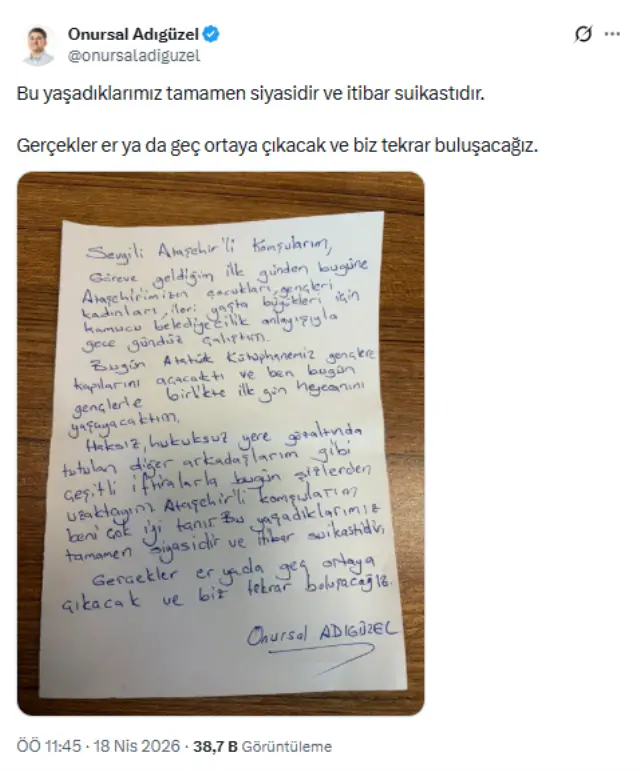 Onursal Adıgüzel
@onursaladiguzel
Bu yaşadıklarımız tamamen siyasidir ve itibar suikastıdır.
Gerçekler er ya da geç ortaya çıkacak ve biz tekrar buluşacağız.
Sevgili Ataşehir'li Komşularım,
Göreve geldiğim ilk günden bugüne
Ataşehirimizin çocukları, gençleri
kadınları, ileri yaşta büyükleri için
kamucu belediyecilik anlayışıyla
gece gündüz çalıştım.
Bugün Atatük Kütüphanemiz gençlere
kapılarını açacaktı ve ben bugün
gençlerle birlikte ilk gün heyecanını
yaşayacaktım.
Haksız, hukuksuz yere gözaltında
tutulan diğer arkadaşlarım gibi
çeşitli iftiralarla bugün sizlerden
uzaktayım. Ataşehir'li komşularım
beni çok iyi tanır. Bu yaşadıklarımız
tamamen siyasidir ve itibar suikastidir,
Gerçekler er yada geç ortaya
çıkacak ve biz tekrar buluşacağız.
Onursal ADIGÜZEL
ÖÖ 11:45 · 18 Nis 2026 · 38,7 B Görüntüleme